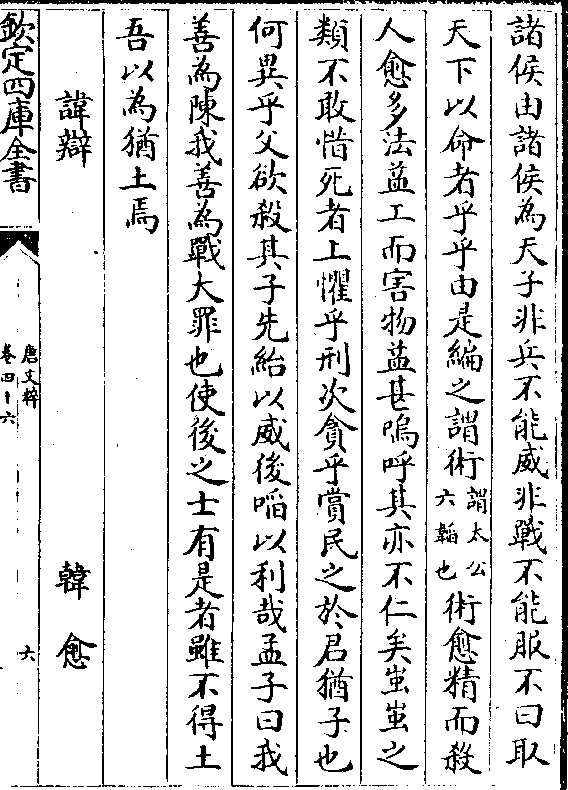 諸侯由諸侯為天子非兵不能威非戰不能服不曰取
天下以命者乎乎由是編之謂術謂太公六韜也術愈精而殺
人愈多法益工而害物益甚嗚呼其亦不仁矣蚩蚩之
類不敢惜死者上懼乎刑次貪乎賞民之於君猶子也
何異乎父欲殺其子先紿以威後啗以利哉孟子曰我
善為陳我善為戰大罪也使後之士有是者雖不得土
吾以為猶土焉
諱辯 韓愈
欽定四庫全書
唐文粹
卷四十六
六